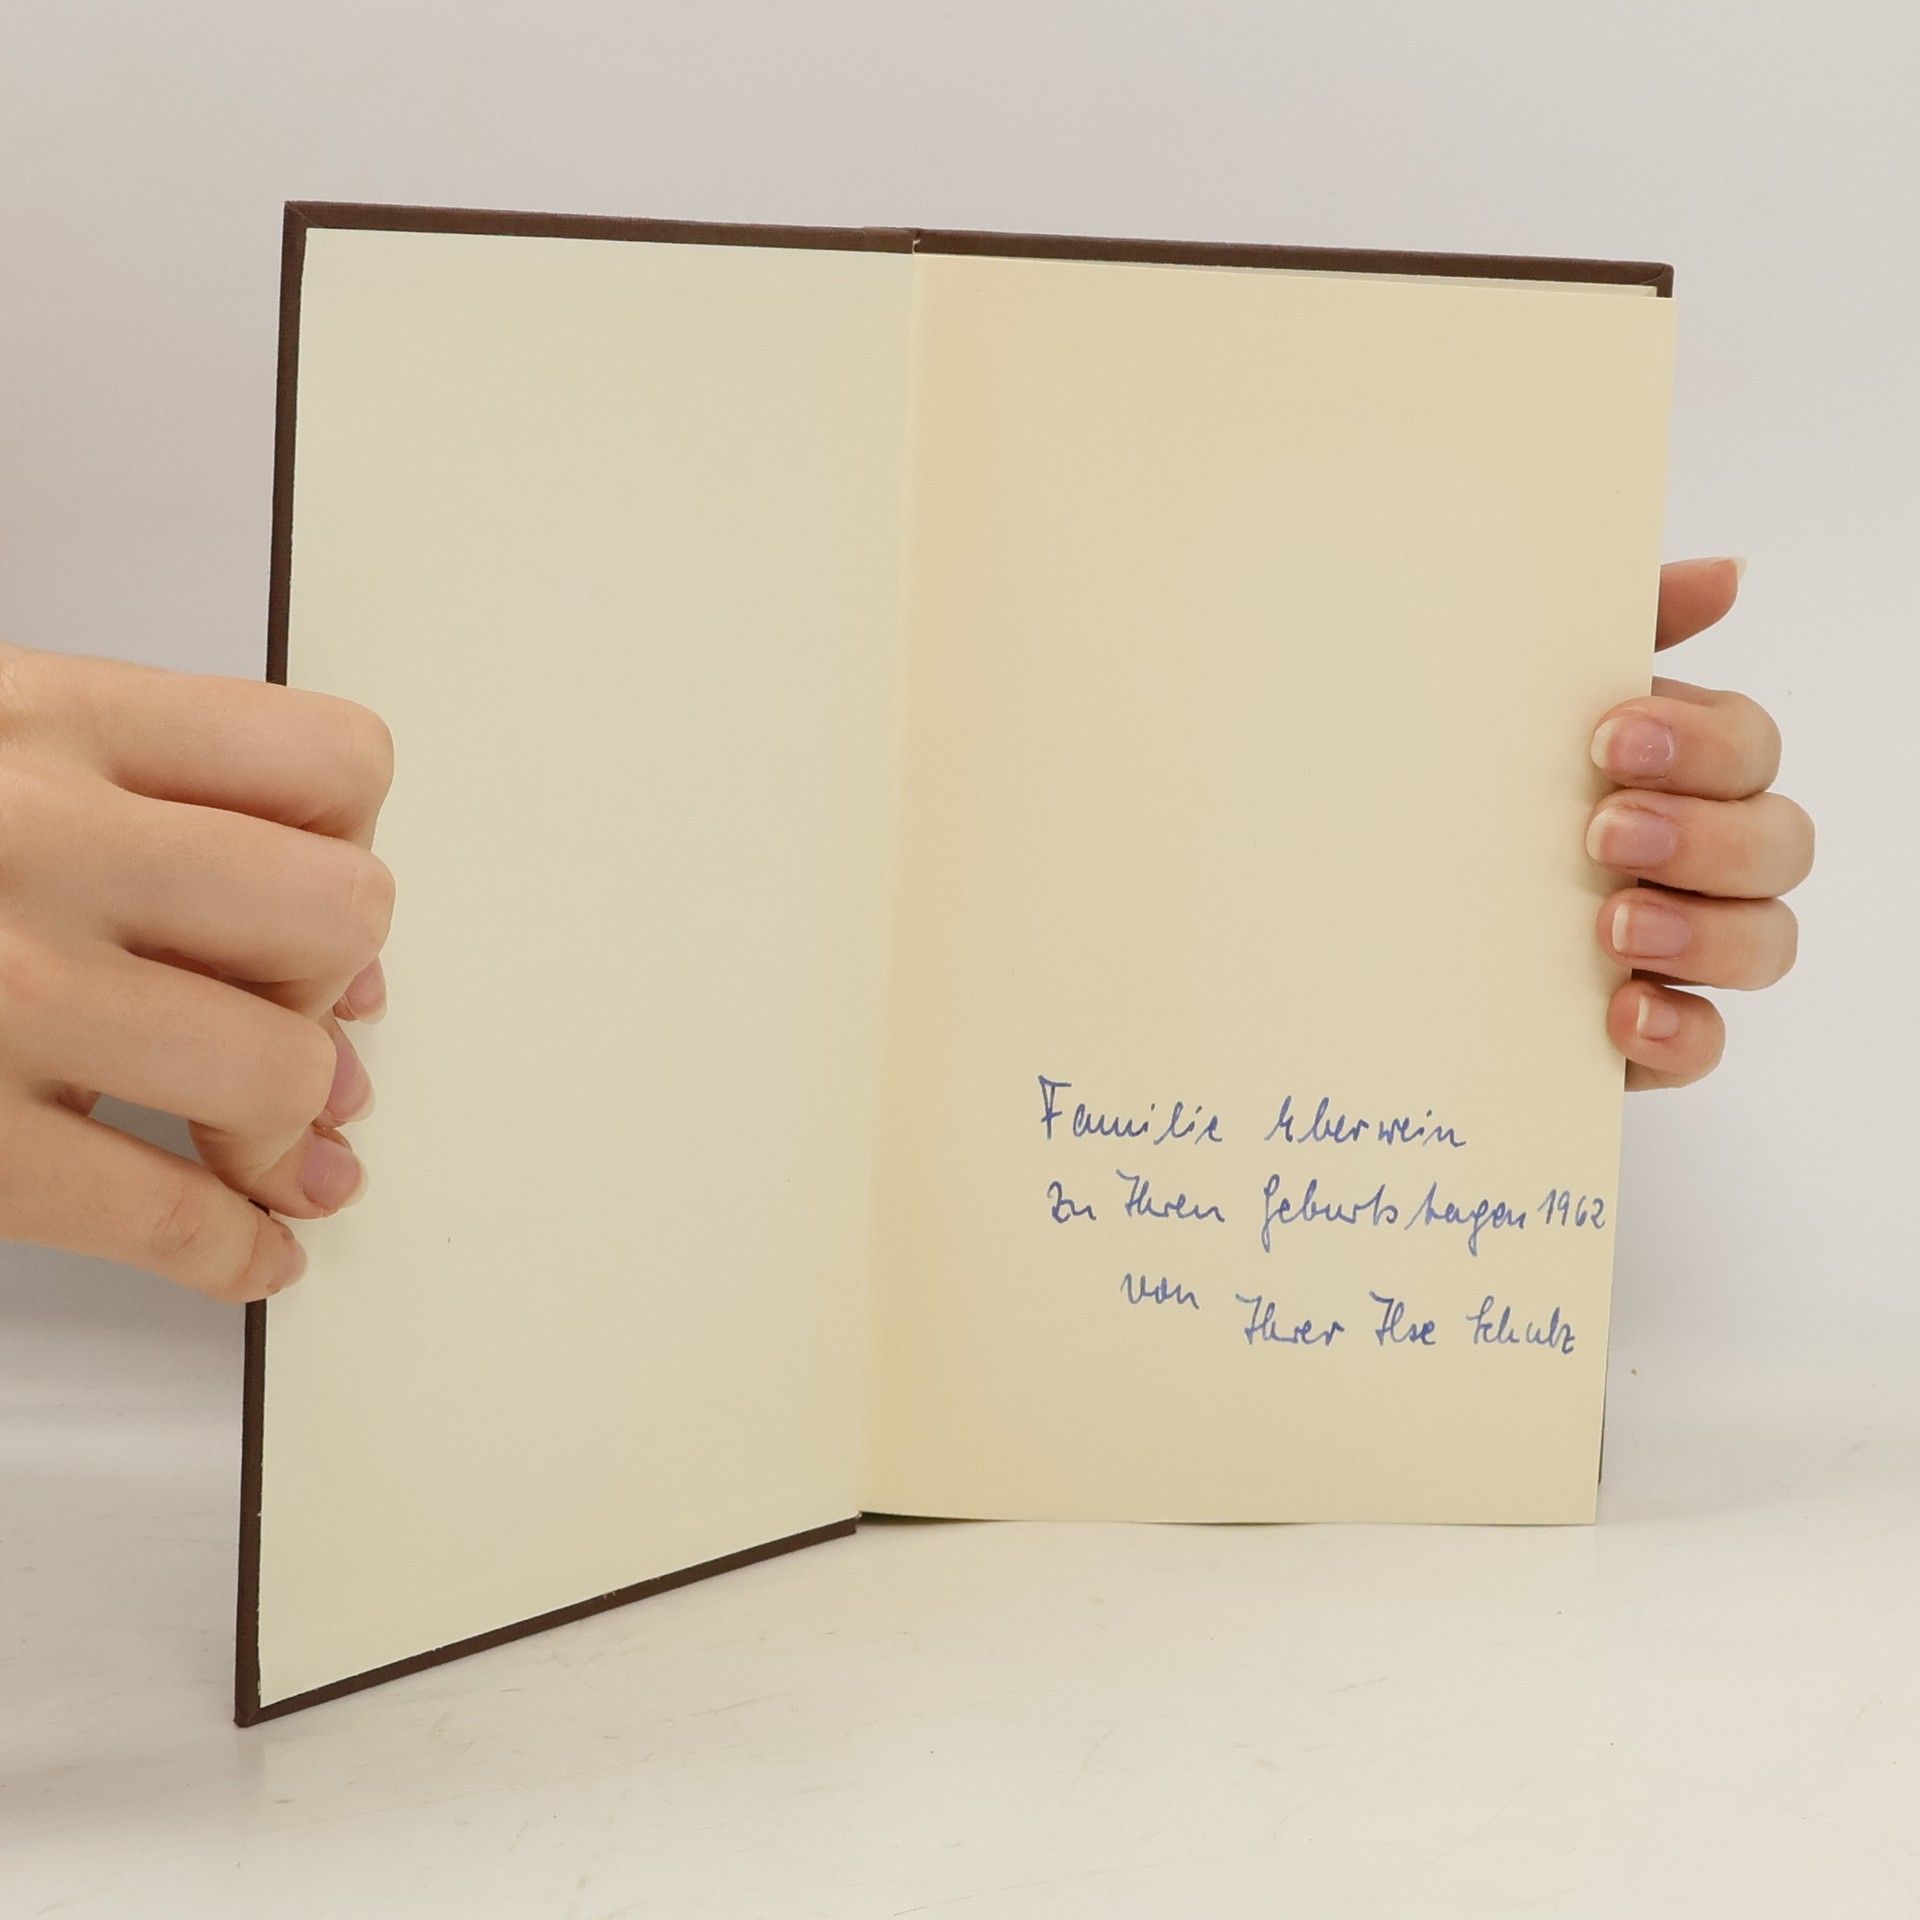 Familie Eberwein
zu Ihren Geburtstagen 1962
von Ihrer Ilse Schulz